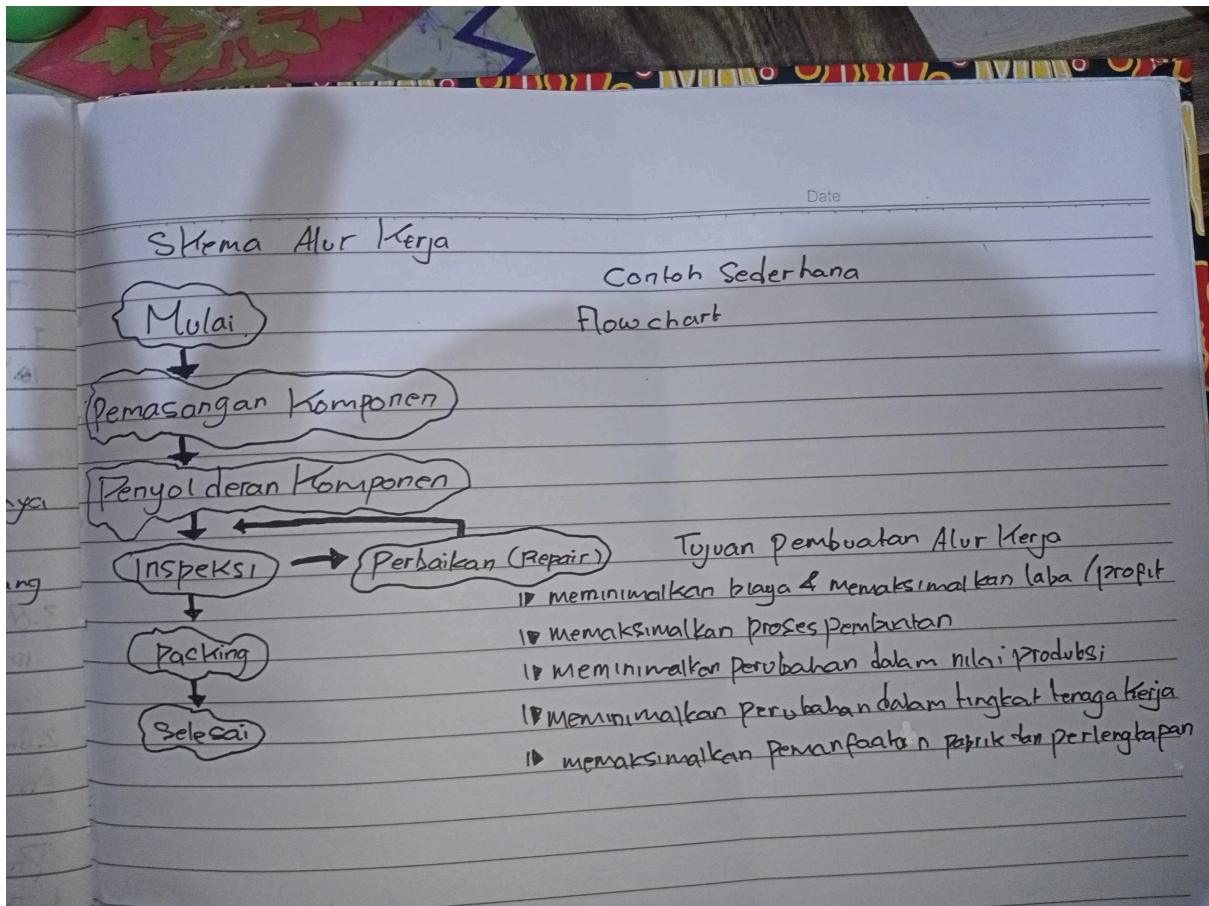 Date
Skema Alur Kerja
Contoh Sederhana
Flowchart
Mulai
Pemasangan Komponen
Penyolderan Komponen
Inspeksi
Perbaikan (Repair)
Packing
Selesai
Tujuan Pembuatan Alur Kerja
meminimalkan biaya & memaksimalkan laba / profit
memaksimalkan proses pembuatan
meminimalkan perubahan dalam nilai produksi
meminimalkan perubahan dalam tingkat tenaga kerja
memaksimalkan pemanfaatan pabrik dan perlengkapan
ya
ang